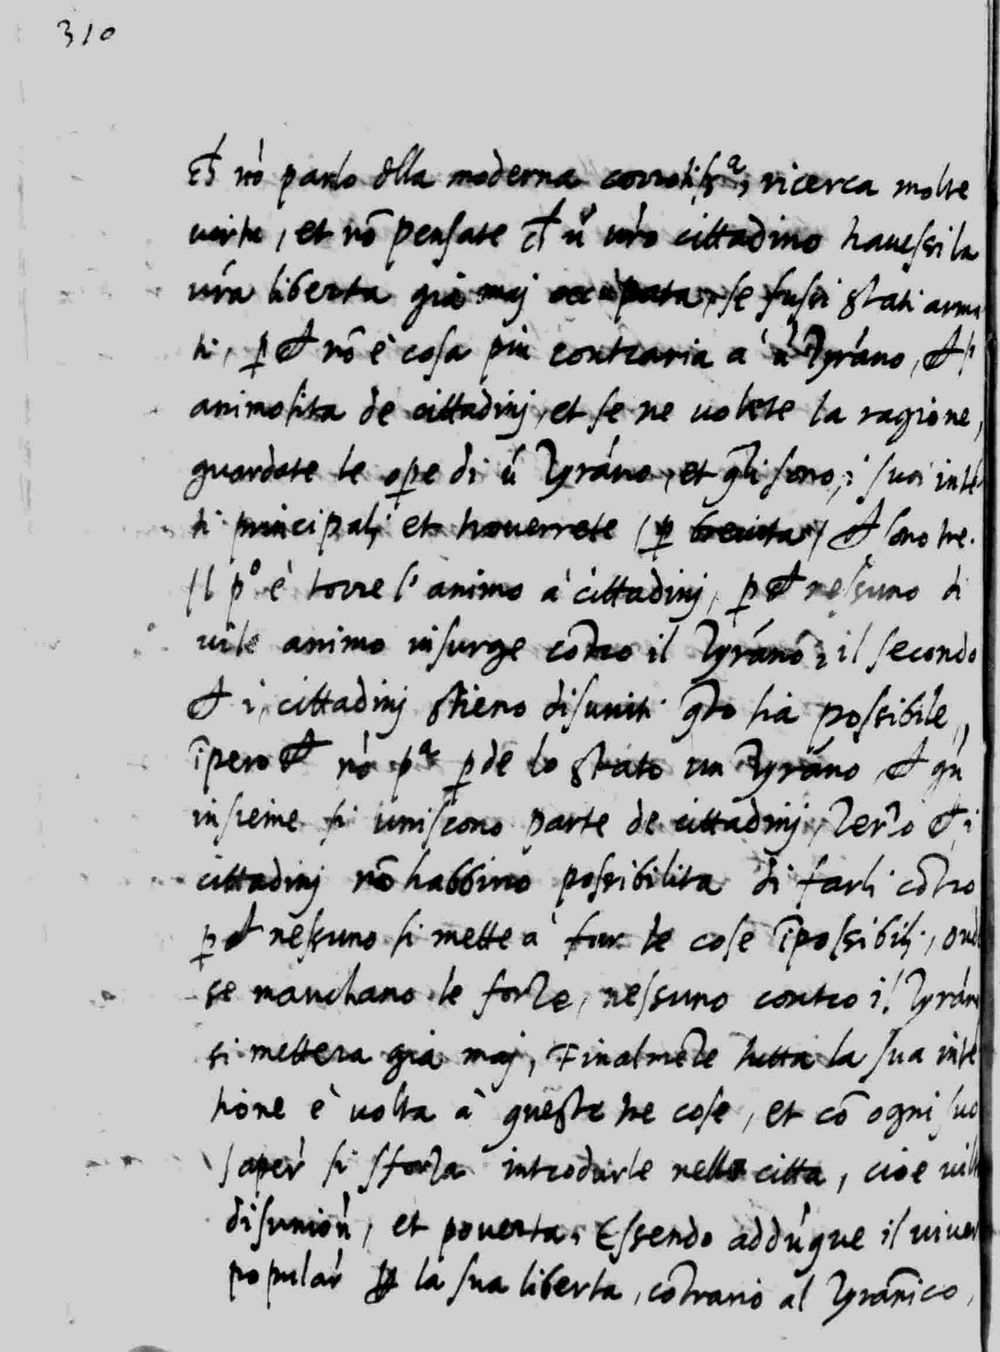 310
nõ parlo della moderna, ricerca molte
virtu, et nõ pensate ch' ũ vr̃o cittadino havessi la
vr̃a liberta gia maj occupata, se fussi stati arma
ti, p ch nõ è cosa piu contraria a ũ Tyrãno, ch l'
animosita de cittadinj, et se ne volete la ragione,
guardate le ope di ũ Tyrãno, et q̃li sono i suoi intẽ
ti principalj et troverrete (p brevita) ch sono tre.
Il pº è torre l'animo à cittadinj, p ch nessuno di
vile animo insurge cõtro il Tyrãno, il secondo
ch i cittadinj stieno disuniti q̃to sia possibile,
ĩpero ch nõ pª pde lo stato un Tyrãno, ch q̃n
insieme si uniscono parte de cittadinj, Terzo ch i
cittadinj nõ habbino possibilita di farli cõtro
p ch nessuno si mette a far le cose ĩpossibilj, onde
se manchano le forze, nessuno contro il Tyrãn
si mettera gia maj, Finalmẽte tutta la sua intẽ
tione è volta à queste tre cose, et cõ ogni suo
saper si sforza introdurle nella citta, cioe vilt
disunion, et poverta. Essendo addũque il viver
popular p la sua liberta, cõtrario al Tyrãnico,